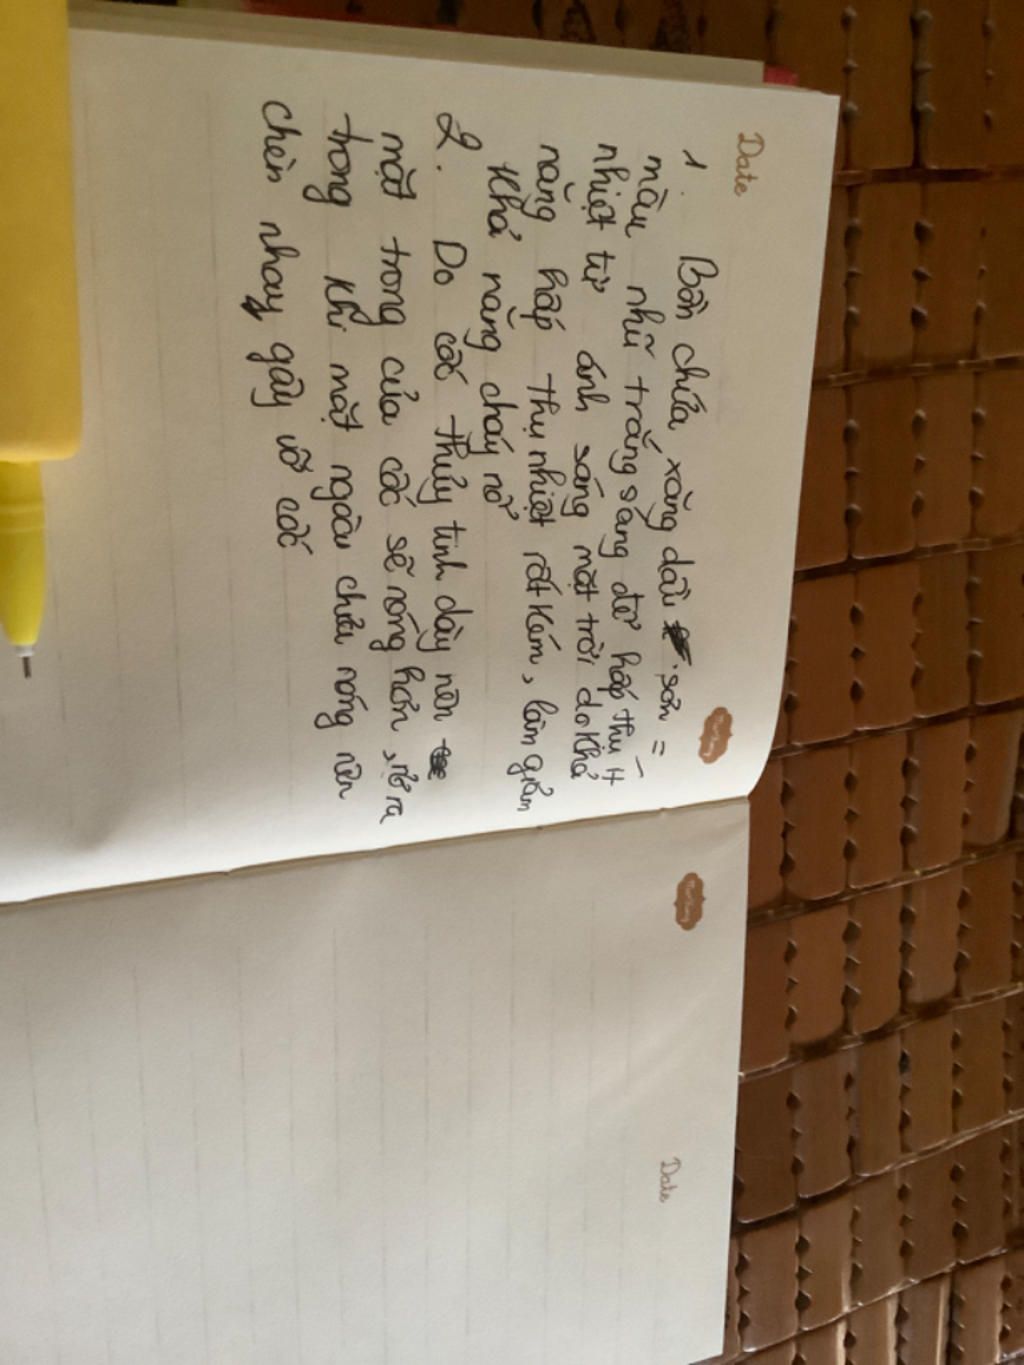 Date
1. Bồn chứa xăng dầu sơn =
màu nhũ trắng sáng để hấp thụ ít
nhiệt từ ánh sáng mặt trời do khả
năng hấp thụ nhiệt rất kém, làm giảm
khả năng cháy nổ
2. Do cốc thủy tinh dày nên
mặt trong của cốc sẽ nóng hơn, nở ra
trong khi mặt ngoài chưa nóng nên
chèn nhau gây vỡ cốc
Date